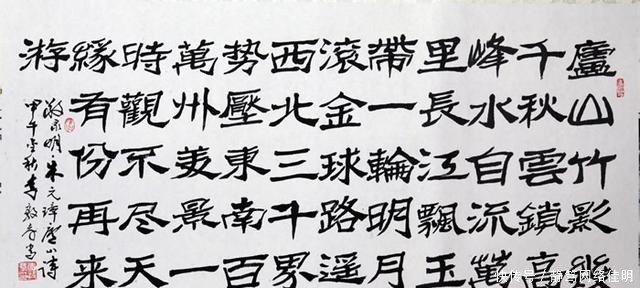 廬山竹影
千秋雲鎖高
峰水自流萬
里長江飄玉
帶一輪明月
滾金球路遥
西北三千界
勢壓東南百
萬州美景一
時觀不尽天
緣有份再来
游
明朱元璋廬山詩
甲午金秋李
快传号/静笃网络佳明